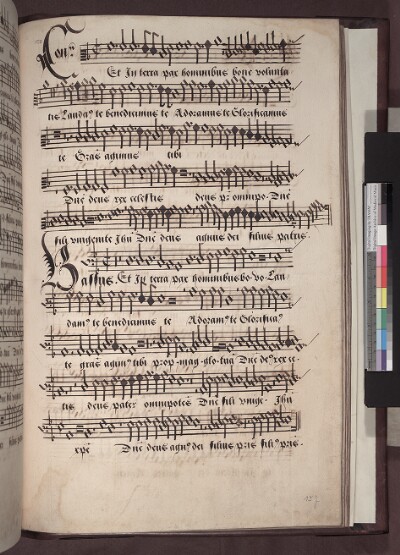 Et In terra pax hominibus bone volunta
tis Laudaꝰ te benedicimus te Adoramus te Glorificamus
te Gras agimus tibi
Dne deus rex celestis deus pr omnipo. Dne
fili vnigenite Ihu Dne deus agnus dei filius patris.
Bassus. Et In terra pax hominibus bo. vo. Lau
damꝰ te benedicimus te Adoramꝰ te Glorificaꝰ
te gras agimꝰ tibi prop. mag. glo. tua Dne deꝰ rex ce
tis deus pater omnipotēs Dne fili vnige. Ihu
xpe Dne deus agnꝰ dei filius pris filiꝰ pris.